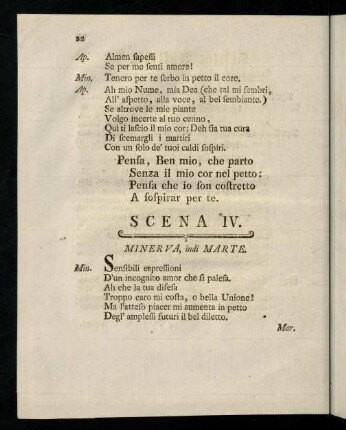 22
Ap. Almen sapessi
Se per me senti amore!
Min. Tenero per te serbo in petto il core.
Ap. Ah mio Nume, mia Dea (che tal mi sembri,
All' aspetto, alla voce, al bel sembiante.)
Se altrove le mie piante
Volgo incerte al tuo cenno,
Qui ti lascio il mio cor: Deh sia tua cura
Di scemargli i martiri
Con un solo de' tuoi caldi sospiri.
Pensa, Ben mio, che parto
Senza il mio cor nel petto:
Pensa che io son costretto
A sospirar per te.
SCENA IV.
MINERVA, indi MARTE.
Min. Sensibili espressioni
D'un incognito amor che si palesa.
Ah che la tua difesa
Troppo caro mi costa, o bella Unione!
Ma l'atteso piacer mi aumenta in petto
Degl' amplessi futuri il bel diletto.
Mar.